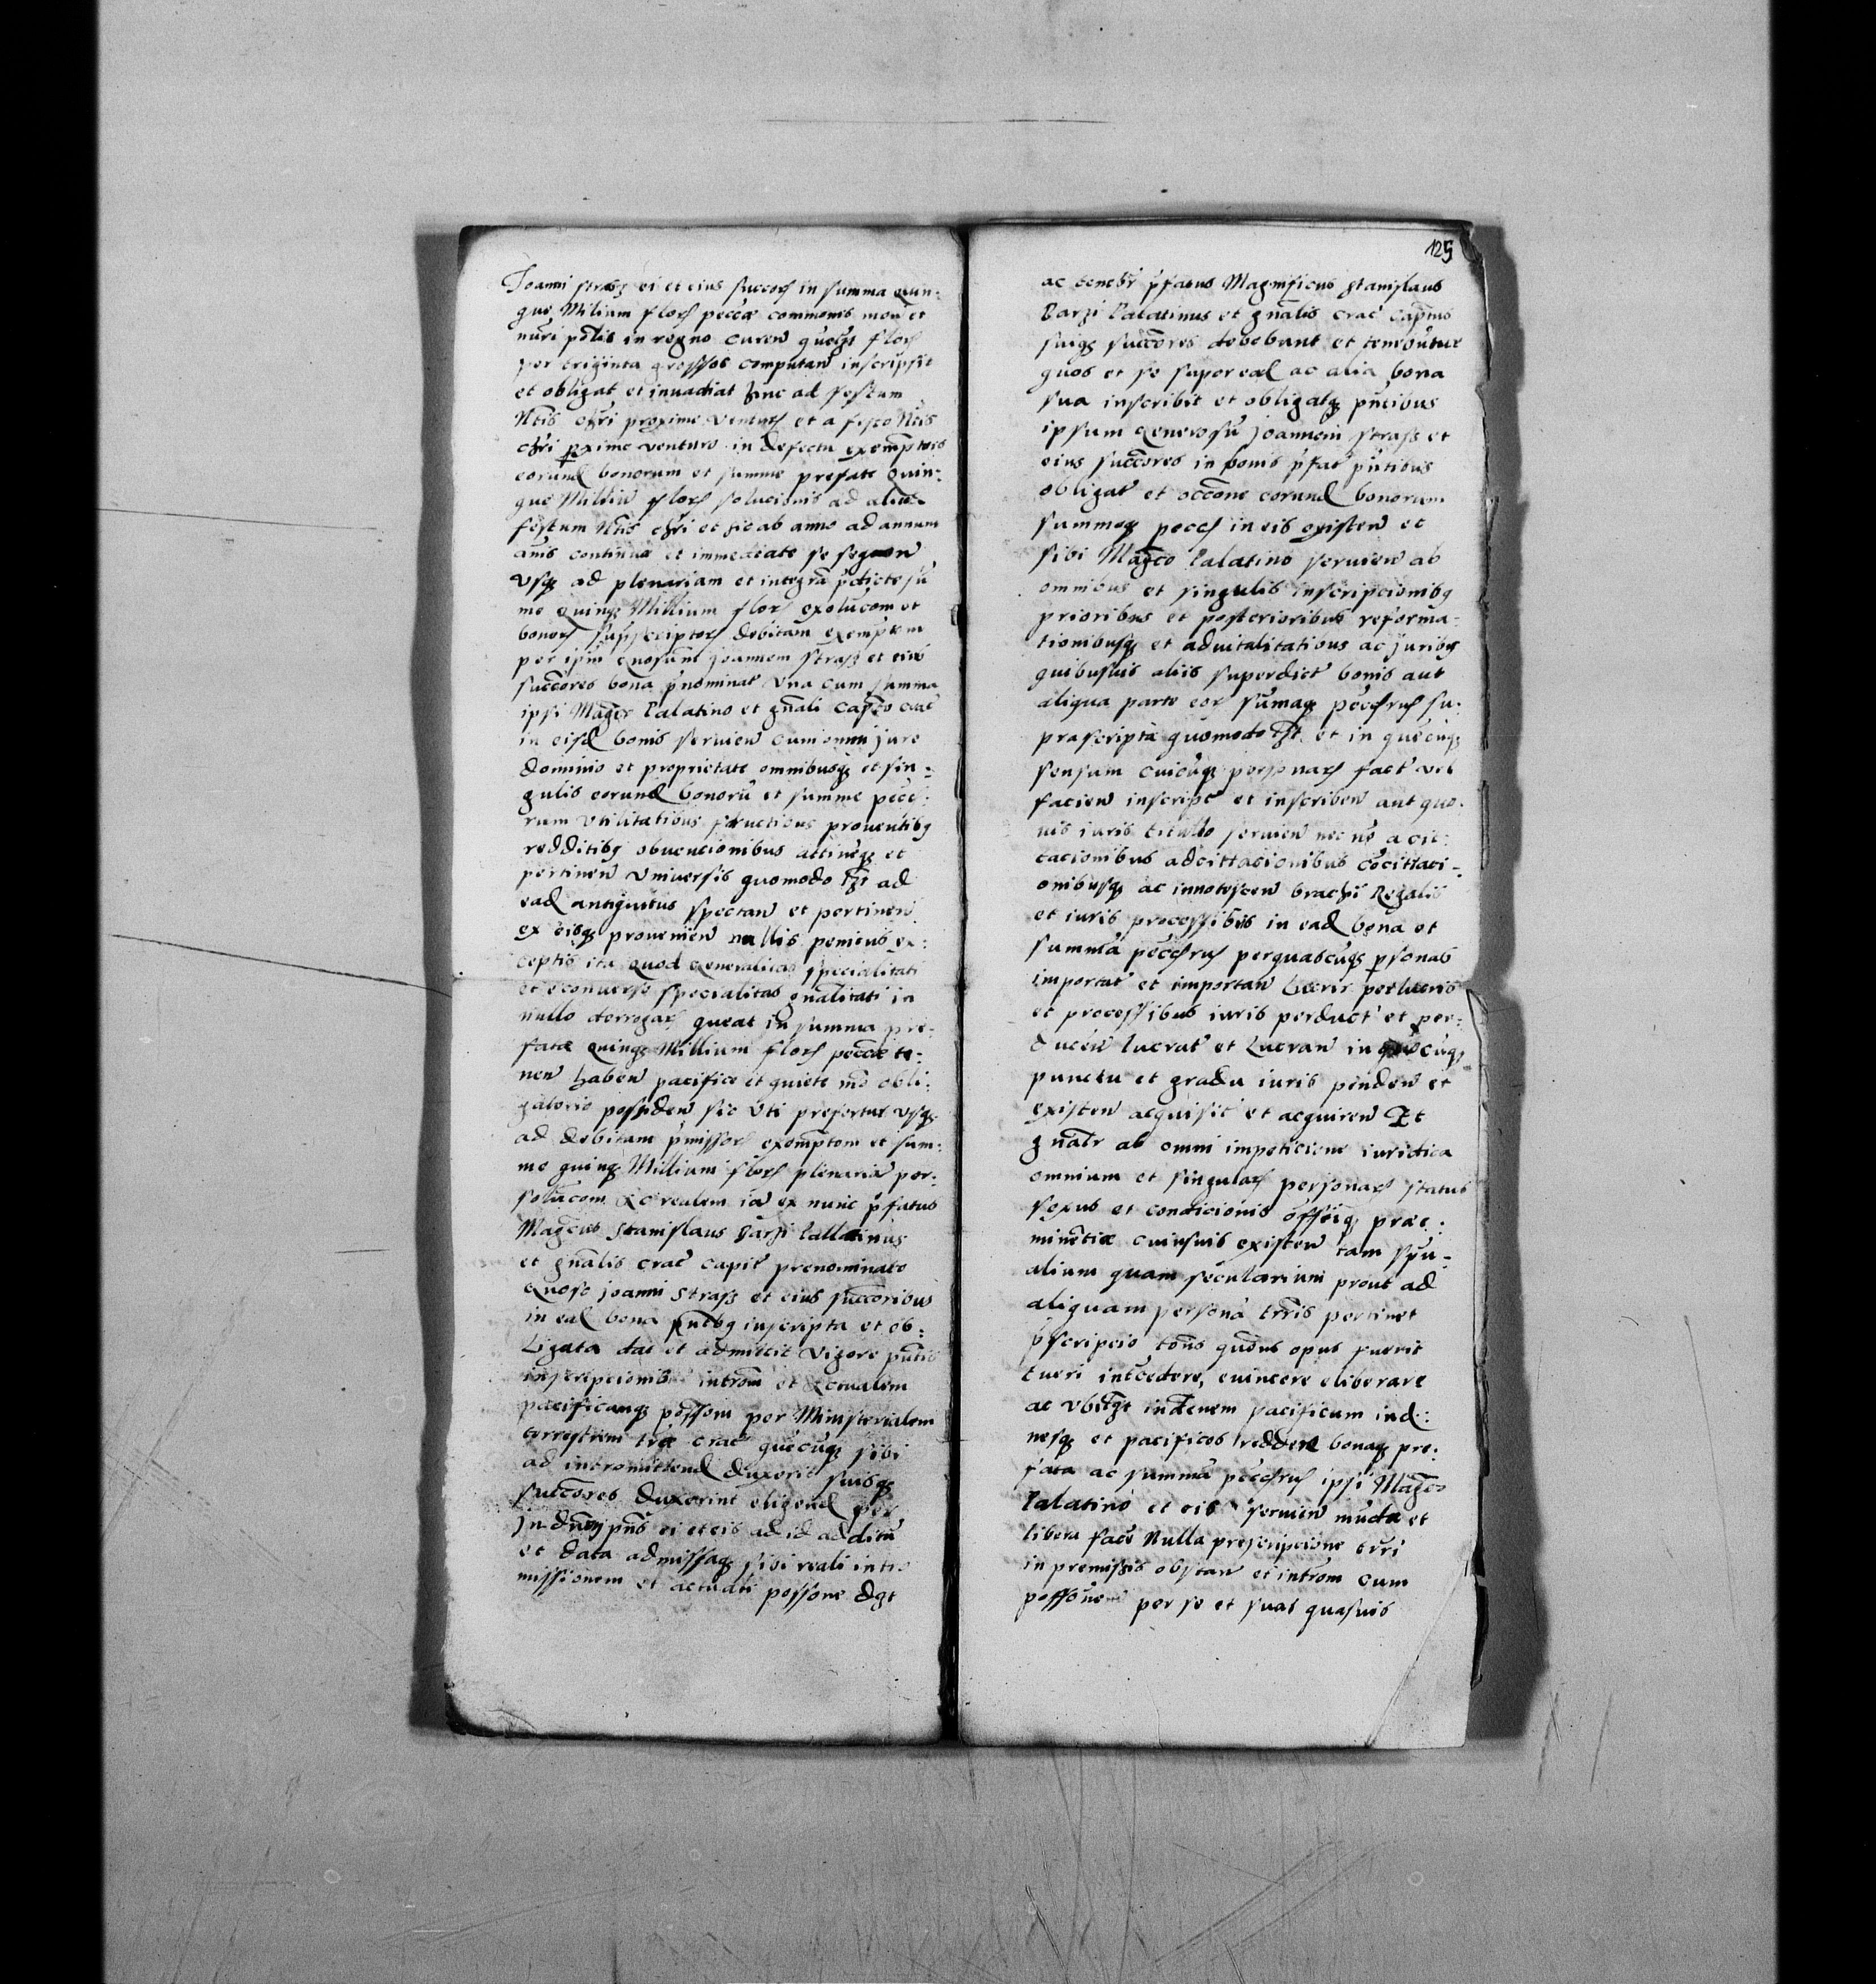 Joanni strasz ei et eius succorꝭ in summa quin:
que Milium florꝭ pecċae communis mon̄ et
nūri pōlis in regno curen̄ quoḡlt florꝭ
per triginta grossos computan̄ inscripsit
et obligat et inuadiat hinc ad festum
Nt̄is chr̄i proxime venturꝭ et a festo Nt̄is
chr̄i ꝓxime venturo in defectu exemptōis
eorund bonorum et summe prefate quin:
que Milliū florꝭ solucionis ad aliud
festum Nt̄is chr̄i et sic ab anno ad annum
annis continue et immediate se sequen̄
vsqꝫ ad plenariam et integrā p̄dicte sū
me quinqꝫ Millium florꝭ exolucōm et
bonorꝭ suprascriptorꝭ debitam exemptōm
per ip̄m Gn̄osum Joannem Strasz et eius
succōres bona p̄nominat vna cum summa
ipsi Magcō Palatino et gn̄ali capn̄eo crac̄
in eisd bonis seruien̄ cum omni jure
dominio et proprietate omnibusqꝫ et sin:
gulis eorund bonorū et summe pecċ:
rum vtilitatibus fructibus prouentibꝫ
redditibꝫ obuencionibus attinēqꝫ et
pertinen̄ vniuersis quomodo lt̄ ad
ead antiquitus spectan̄ et pertinen̄
ex eisqꝫ prouenien̄ nullis penitus ex:
ceptis ita quod generalitas specialitati
et econuerso specialitas gn̄alitati in
nullo derrogarꝭ queat in summa pre:
fata quinqꝫ Millium florꝭ pecċae te:
nen̄ haben̄ pacifice et quiete mō obli:
gatorio possiden̄ sic vti prefertur vsqꝫ
ad debitam p̄missorꝭ exemptōm et sum:
me quinqꝫ Millium florꝭ plenariā per:
solucōm &c realem iā ex nunc p̄fatus
Magcūs Stanislaus Barzi Pallatinus
et gn̄alis crac̄ capit̄ prenominato
Gn̄oso Joanni Strasz et eius succōribus
in ead bona pn̄tibꝫ inscripta et ob:
Ligata dat et admittit vigore pn̄tis
inscripcionis intrōm et Actualem
pacificamqꝫ possōm per Ministerialem
terrestrem trae crac̄ quēcūqꝫ sibi
ad intromittend duxerit suisqꝫ
succōres duxerint eligend per
Jn dn̄m pn̄s ei et eis ad id additū
et data admissaqꝫ sibi reali intro
missionem et actuali possone dgt
125
ac tenebr̄ p̄fatus Magnificus Stanislaus
Barzi Palatinus et gn̄alis crac̄ capn̄us
suiqꝫ succōres debebunt et tenebūtur
quos et se super ead ac alia bona
sua inscribit et obligatqꝫ pn̄tibus
ipsum Generosū Joannem Strasz et
eius succōres in bonis p̄fat pn̄tibus
obligat̄ et occōne eorund bonorum
summeqꝫ peccꝭ in eis existen̄ et
sibi Magcō Palatino seruien̄ ab
omnibus et singulis inscripcionibꝫ
prioribus et posterioribus reforma:
tionibusqꝫ et aduitalitatibus ac juribꝫ
quibusuis aliis superdict̄ bonis aut
aliqua parte eorꝭ sūmaqꝫ pecċrꝭ su:
prascripta quomodo lt̄ et in quēcūqꝫ
sensum cuicūqꝫ personarꝭ fact̄ vel
facien̄ inscript̄ et inscriben̄ aut quo:
uis iuris titulo seruien̄ nec nō a cit:
tacionibus adcittacionibus cōcittaci:
onibusqꝫ ac innotescen̄ brachi Regalis
et iuris processibus in ead bona et
summā pecċrꝭ perquascūqꝫ ꝑsonas
importat̄ et importan̄ lucris perlucris
et processibus iuris perduct̄ et per:
ducen̄ lucrat̄ et lucran̄ in quocūqꝫ
punctu et gradu iuris penden̄ et
existen̄ acquisit̄ et acquiren̄ Et
gn̄alr̄ ab omni impeticione iuridica
omnium et singularꝭ personarꝭ status
sexus et condicionis officiiqꝫ prae:
minētiae cuiusuis existen̄ tam spū:
alium quam secularium prout ad
aliquam personā trr̄is pertinet
p̄scripcio tōns quōns opus fuerit
tueri intcedere, euincere eliberare
ac vbilt̄ indenem pacificum ind:
nesqꝫ et pacificos reddere bonaqꝫ pre:
fata ac summā pecċrꝭ ipsi Magcō
Palatino et eis seruien̄ mūda et
libera face Nulla prescripcione trr̄i
in premissis obstan̄ et intrōm cum
possōne per se et suas quasuis